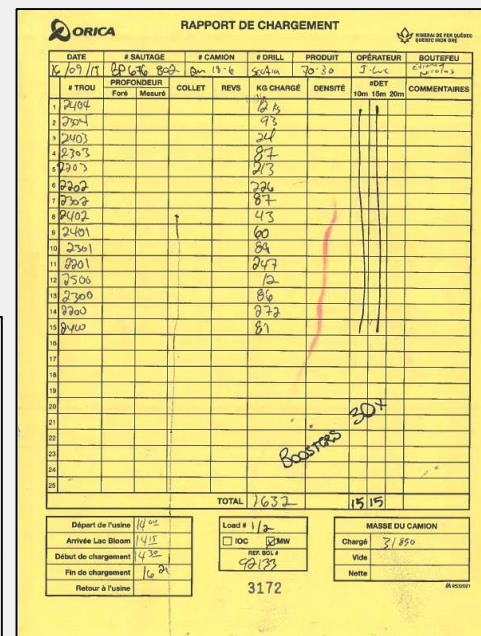 ORICA
RAPPORT DE CHARGEMENT
MINERAI DE FER QUÉBEC
QUEBEC IRON ORE
DATE # SAUTAGE # CAMION # DRILL PRODUIT OPÉRATEUR BOUTEFEU
16/09/17 BP 676 802 70-30 J-Luc Nicolas
# TROU PROFONDEUR COLLET REVS KG CHARGÉ DENSITÉ #DET COMMENTAIRES
Foré Mesuré 10m 15m 20m
1 2404
2 2304 93
3 2403 24
4 2303 87
5 2203 213
6 2202 226
7 2302 87
8 2402 43
9 2401 60
10 2301 89
11 2201 247
12 2500 12
13 2300 86
14 2200 272
15 2400 81
16
17
18
19
20
21
22
23
24
25
BOOSTERS 30x
TOTAL 1632 15 15
Départ de l'usine 14 00
Arrivée Lac Bloom 14 15
Début de chargement 14 30
Fin de chargement 16 21
Retour à l'usine
Load # 1/2
IOC MW
REF. BOL #
92133
3172
MASSE DU CAMION
Chargé 31850
Vide
Nette